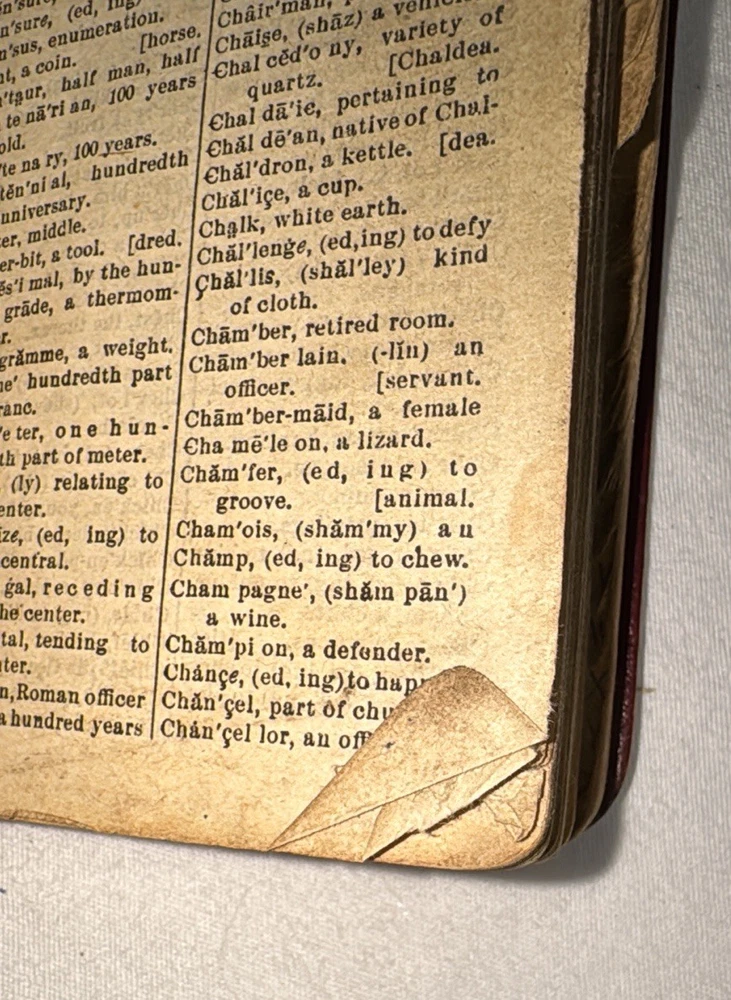 (ed, ing)
n'sus, enumeration.
a coin. [horse.
half man, half
te nā'ri an, 100 years
old.
te na ry, 100 years.
tĕn'ni al, hundredth
middle.
er-bit, a tool. [dred.
ĕs'i mal, by the hun-
grāde, a thermom-
r.
grămme, a weight.
hundredth part
ranc.
e ter, one hun-
th part of meter.
(ly) relating to
enter.
ize, (ed, ing) to
central.
gal, receding
he center.
tal, tending to
ter.
n, Roman officer
a hundred years
Châir'man,
Chāise, (shāz) a
Chal cĕd'o ny, variety of
quartz. [Chaldea.
Chal dā'ic, pertaining to
Chăl dē'an, native of Chal-
Chăl'dron, a kettle. [dea.
Chăl'içe, a cup.
Chalk, white earth.
Chăl'lenġe, (ed,ing) to defy
Çhăl'lis, (shăl'ley) kind
of cloth.
Chām'ber, retired room.
Chām'ber lain. (-lĭn) an
officer. [servant.
Chām'ber-māid, a female
Cha mē'le on, a lizard.
Chăm'fer, (ed, ing) to
groove. [animal.
Cham'ois, (shăm'my) an
Chămp, (ed, ing) to chew.
Cham pagne', (shăm pān')
a wine.
Chăm'pi on, a defender.
Chánçe, (ed, ing) to
Chăn'çel, part of
Chán'çel lor, an